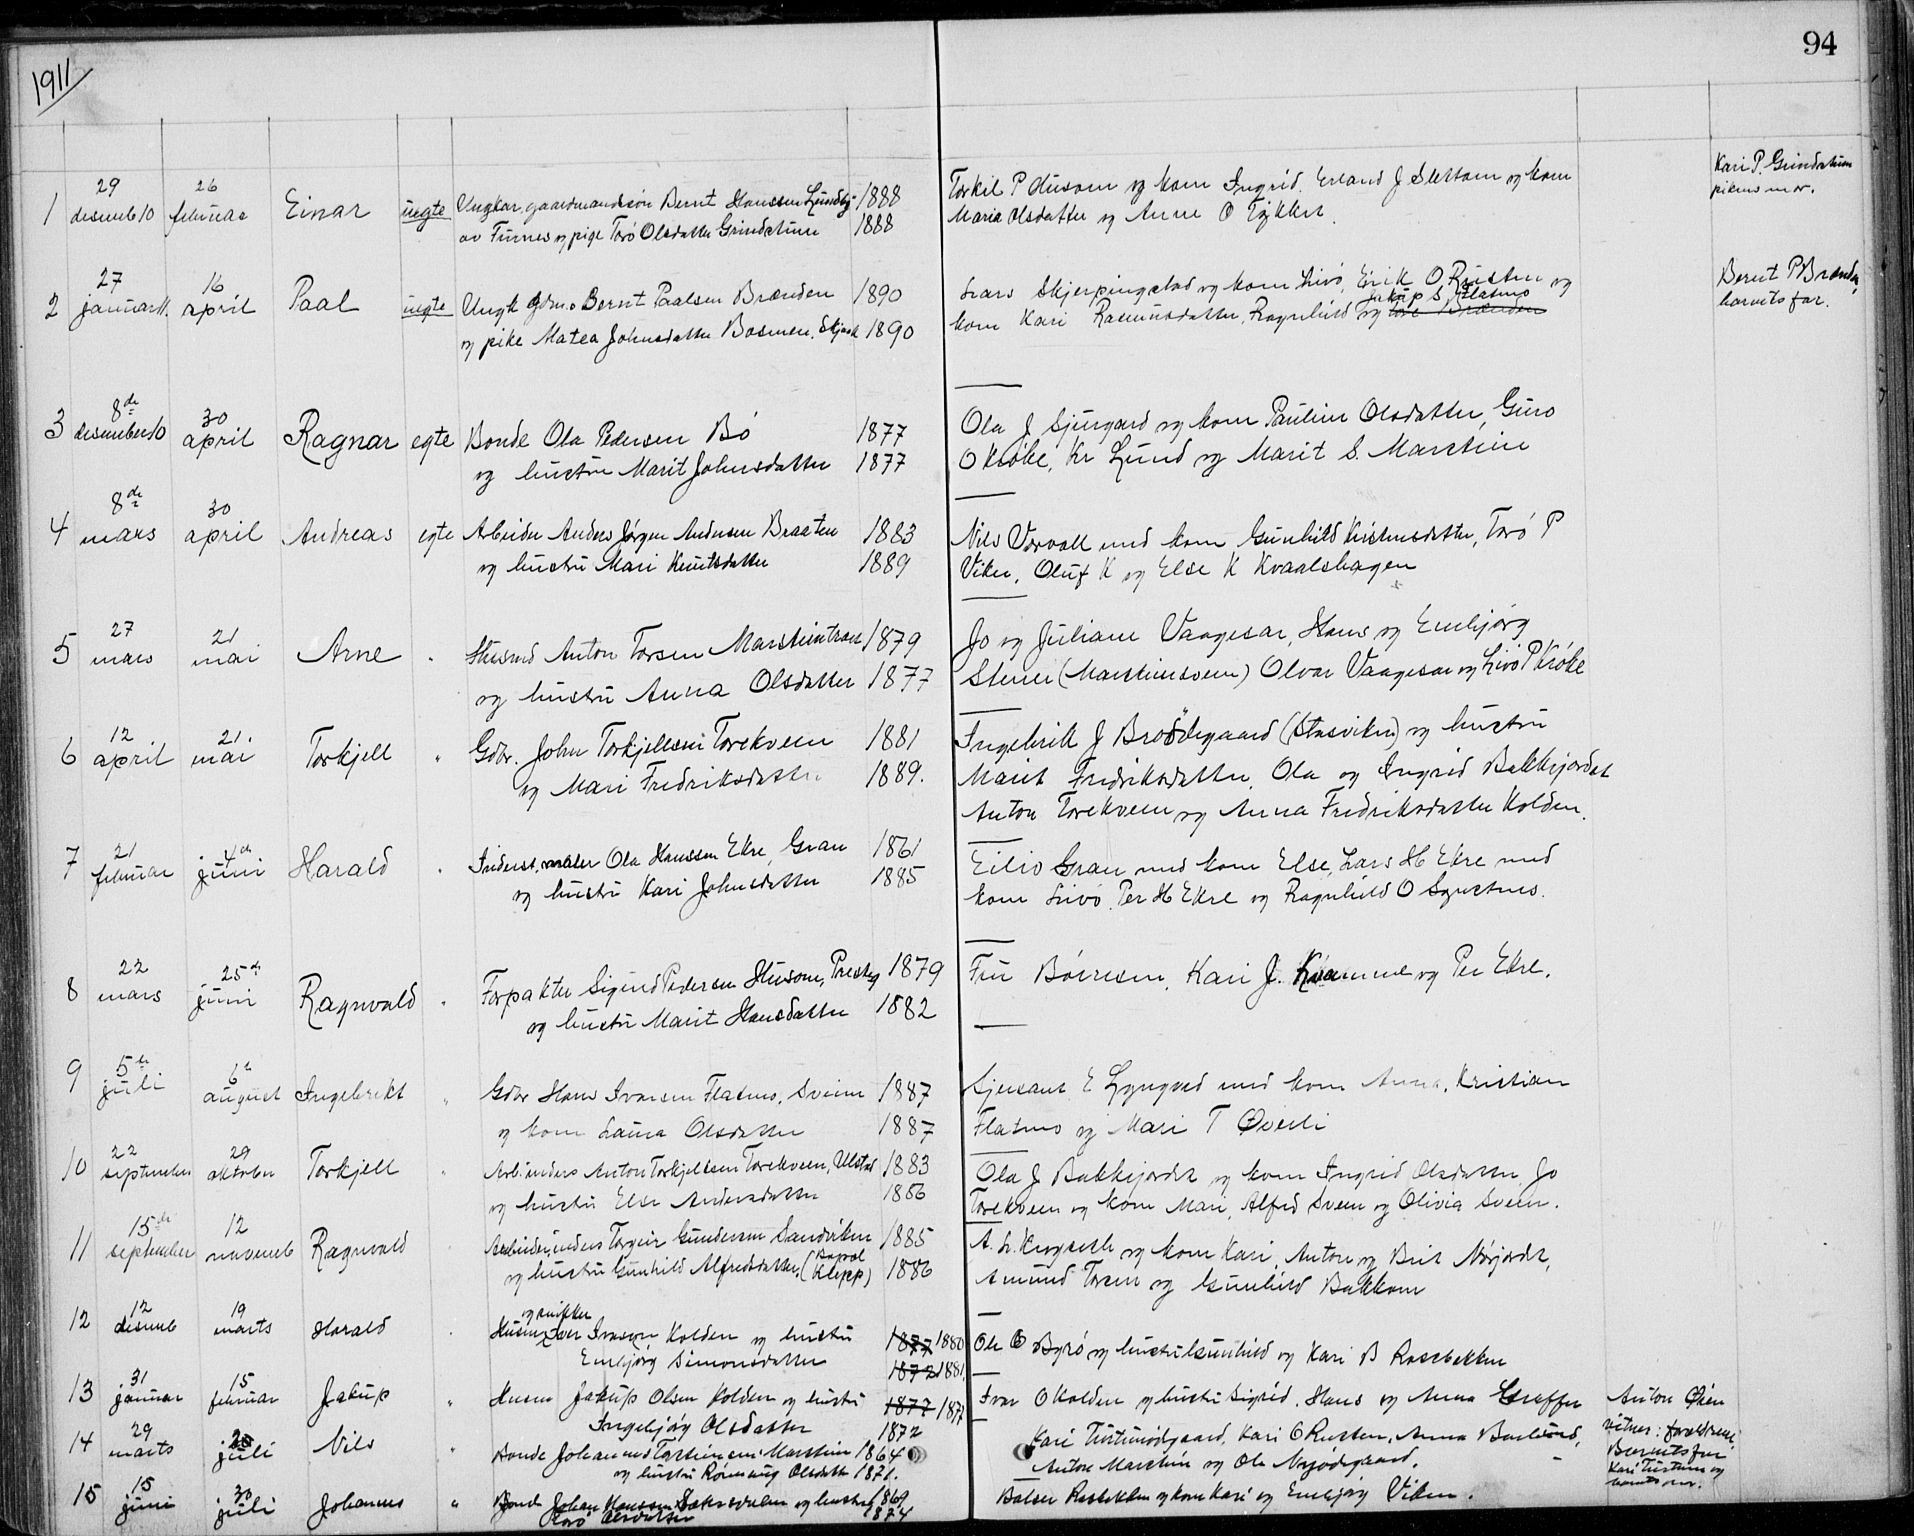 94
1911
1 29 desemb 10 26 februar Einar uegte Ungkar, gaardmandssøn Bernt Hanssen Lundby 1888
av Furnes og pige Torø Olsdatter Grindstuen 1888
Torkil P Husom og kom Ingrid. Erland J Slettom og kom
Maria Olsdatter og Anne O
Kari P. Grindstuen
pikens mor.
2 27 januar 11 16 april Paal uegte Ungk gdm.s Bernt Paalsen Brænden 1890
og pike Matea Johnsdatter Bosmen, Skjaak 1890
Lars Skjerpingstad og kom Livø, Erik O Rusten og
kom Kari Rasmusdatter, Ragnhild og Jakup S Flatmo
Bernt P Brænden
barnets far.
3 8de desember 10 30 april Ragnar egte Bonde Ola Pedersen Bø 1877
og hustru Marit Johnsdatter 1877
Ola J Sjurgard og kom Pauline Olsdatter, Guro
O Krøke, Kr Lund og Marit S. Marstein
4 8de mars 30 april Andreas egte Arbeider Anders Jørgen Andersen Braaten 1883
og hustru Mari Knutsdatter 1889
Nils Vorvall med kom Gunhild Kristensdatter, Torø P
Viken, Oluf K og Else K Kvaalshagen
5 27 mars 21 mai Arne " Husmd Anton Torsen Marsteintrøen 1879
og hustru Anna Olsdatter 1877
Jo og Juliane Vaagesar, Hans og Embjørg
Steinei (Marsteinsveen) Olvar Vaagesar og Livø P Krøke
6 12 april 21 mai Torkjell " Gdbr. John Torkjellsen Torekveen 1881
og Mari Fredriksdatter 1889.
Ingebrik J Brødegaard (Stasviken) og hustru
Marit Fredriksdatter, Ola og Ingrid Bakkjordet
Anton Torekveen og Anna Fredriksdatter Kolden.
7 21 februar 4de juni Harald " Inderst, maler Ola Hanssen Ekre, Gran 1861
og hustru Kari Johnsdatter 1885
Eiliv Gran med kom Else, Lars H Ekre med
kom Livø, Per H Ekre og Ragnhild O
8 22 mars 25de juni Ragnvald " Forpakter Sigurd Pedersen Husom, Presteg 1879
og hustru Marit Hansdatter 1882
Fru Børresen, Kari J. Kvamme og Per Ekre.
9 5te juli 6te august Ingebrikt " Gdbr Hans Ivarsen Flatmo, Sveen 1887
og kom Laura Olsdatter 1887
Sjersant E Lyngved med kom Anna, Kristian
Flatmo og Mari T Øverli
10 22 september 29 oktober Torkjell " Arb. inders Anton Torkjellsen Torekveen, Ulstad 1883
og hustru Else Andersdatter 1886
Ola J Bakkjordet og kom Ingrid Olsdatter Jo
Torekveen og kom Mari, Alfred Sveen og Olivia Sveen.
11 15de september 12 novemb Ragnvald Arbeider, inders Torgeir Gundersen Sandviken 1885
og hustru Gunhild Alfredsdatter, (Klepp) 1886
A. L. Krogseth og kom Kari, Anton og Brit Nørjordet,
Amund Toren og Gunhild Bakkom
12 12 desemb 19 marts Harald Husm og snikker Iver Iversen Kolden og hustru 1877 1880
Embjørg Simonsdatter 1872 1881.
Ole O Byrø og hustru Gunhild og Kari B Rossbekken
13 31 januar 15 februar Jakup " Husm Jakup Olsen Kolden og hustru 1877 1871
Ingebjørg Olsdatter 1872
Ivar O Kolden og hustru Sigrid. Hans og Anna Graffer
Anton Øien
14 29 marts juli Nils " Bonde Johannes Torsteinsen Marstein 1864
og hustru Rønnaug Olsdatter 1871.
Kari Tustumødgaard, Kari O Rusten, Anna
Anton Marstein og Ole Nøjødegaard.
vitner: forældrene
15 15 juni 30 juli Johannes " Bonde Johan Hanssen og hustru 1869
Torø Olsdatter 1874
Balser Rosbekken og kom Kari og Embjørg Viken.